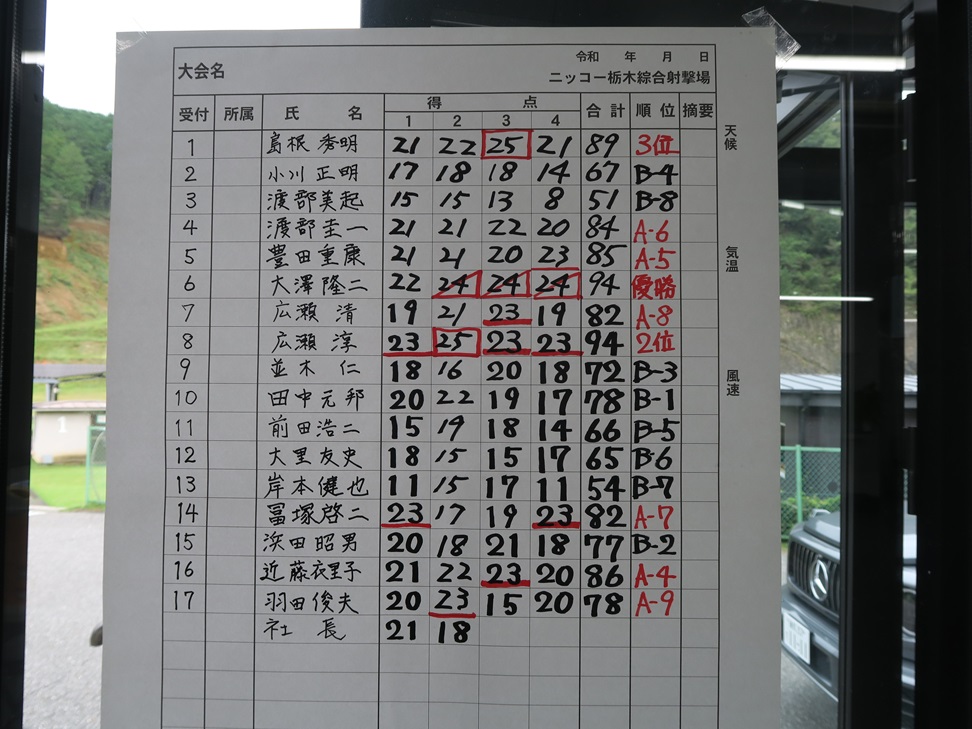 令和 年 月 日
大会名 ニッコー栃木綜合射撃場
受付 所属 氏 名 得 点 合 計 順 位 摘要
1 2 3 4
1 島根 秀明 21 22 25 21 89 3位
2 小川 正明 17 18 18 14 67 B-4
3 渡部美起 15 15 13 8 51 B-8
4 渡部圭一 21 21 22 20 84 A-6
5 豊田重康 21 21 20 23 85 A-5
6 大澤隆二 22 24 24 24 94 優勝
7 広瀬 清 19 21 23 19 82 A-8
8 広瀬 淳 23 25 23 23 94 2位
9 並木 仁 18 16 20 18 72 B-3
10 田中元邦 20 22 19 17 78 B-1
11 前田浩二 15 19 18 14 66 B-5
12 大里友史 18 15 15 17 65 B-6
13 岸本健也 11 15 17 11 54 B-7
14 冨塚啓二 23 17 19 23 82 A-7
15 浜田昭男 20 18 21 18 77 B-2
16 近藤衣里子 21 22 23 20 86 A-4
17 羽田俊夫 20 23 15 20 78 A-9
社 長 21 18
天候
気温
風速